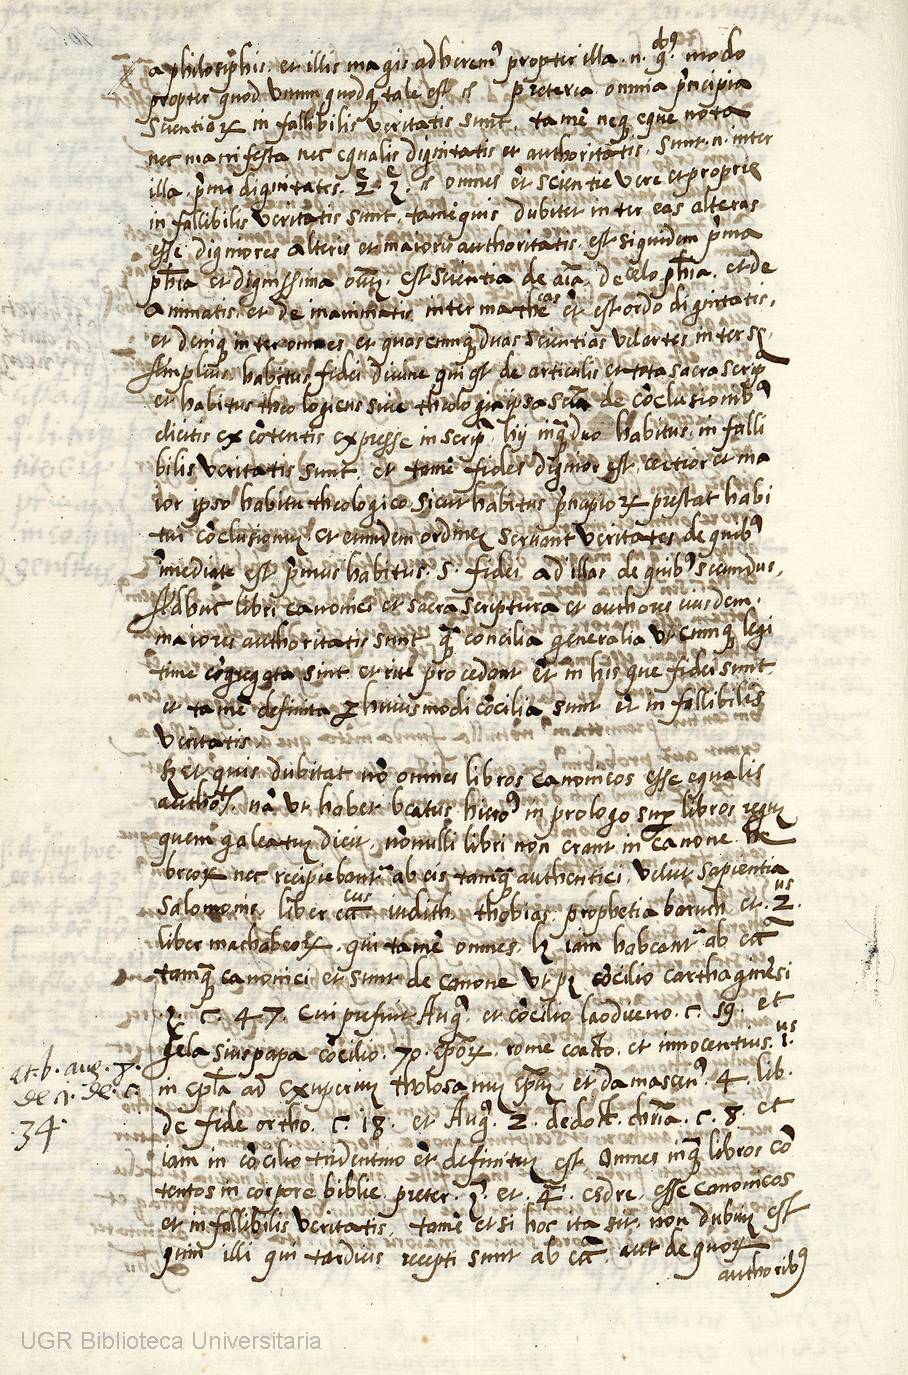 a philosophis. et illis magis adheremꝰ propter illa .n. qꝫ. modo
propter quod Vnum quodqꝫ tale est   preterea omnia prīcipia
scientiaꝝ infallibilis veritatis sunt, tamē neqꝫ eque nota
nec manifesta nec equalis dignitatis et authoritatis. sunt .n. inter
illa. prīme dignitates. 2ᵉ   omnes ēt scientie vere et proprie
in fallibilis veritatis sunt, tamē quis dubitet inter eas alteras
esse digniores alteris et maioris authoritatis. est siquidem prīma
phīa et dignissima est scientia de aīa, de celo phīa. et de
animatis. et de inanimatis inter mathēcas ēt est ordo dignitatis,
et deniqꝫ inter omnes et quascumqꝫ duas scientias vel artes inter se
Amplius habitus fidei divine qui est de articulis et tota sacra scrip
et habitus theologicus sive theologia ipsa de cōclusionibꝰ
elicitis ex cōtentis expresse in scripᵃ. hij inqꝫ duo habitus, in falli
bilis veritatis sunt et tamē fides dignior est, certior et ma
ior ipso habitu theologico sicut habitus prīcipioꝝ prestat habi
tui cōclusionuꝫ et eumdem ordineꝫ servant veritates de quibꝰ
īmediate est prīmus habitus. s. fidei ad illas de quibꝰ secundus,
Adhuc libri canonices et sacra scriptura et authores eiusdem.
maioris authoritatis sunt qꝫ concilia generalia Vtcumqꝫ legi
time cōgregata sint et rite procedant ēt in his que fidei sunt
et tamē definita ꝑ huiusmodi cōcilia sunt ēt in fallibilis
veritatis
Et quis dubitat nō omnes libros canonicos esse equalis
authotis. nā Vt habet beatus hieroꝰ in prologo suꝑ libros reguꝫ
quem galeatuꝫ dicit. nōnulli libri non erant in canone he
breoꝝ nec recipiebantᷣ ab eis tamqꝫ authentici, velut sapientia
Salomonis, liber ecᵃcus iudith, thobias, prophetia baruch et. 2us.
liber machabeoꝝ. qui tamē omnes, lꝫ iam habeantᷣ ab ecᵃ
tamqꝫ canonici et sunt de canone Vt pꝫ cōcilio carthaginēsi
3. c. 47. Cui prefuit Augꝰ. et cōcilio laodiceno. c. 59. et
gelasius papa cōcilio. 70. epōꝝ. rome coacto. et innocentius. 1us.
in epīla ad exuperiuꝫ tholosanuꝫ epūꝫ. et damascenꝰ. 4. lib.
de fide ortho. c. 18. et Augꝰ. 2. de doct. chrīa. c. 8. et
iam in cōcilio tridentino ēt definituꝫ est. Omnes inqꝫ libros cō
tentos in corpore biblie preter. 3. et. 4. esdre, esse canonicos
et in fallibilis veritatis, tamē et si hoc ita sit. non dubiuꝫ est
quin illi qui tardius recepti sunt ab ecᵃ. aut de quoꝝ
authoribꝰ
et. b. aug. 7.
de ci. de. c.
34.
UGR Biblioteca Universitaria